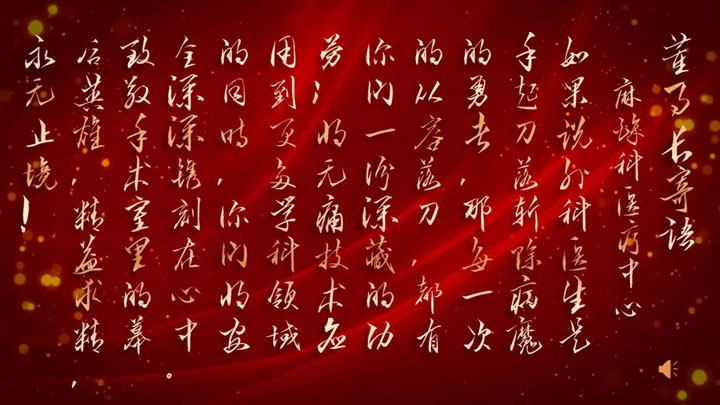 董事长寄语
麻醉科医疗中心
如果说外科医生是
手起刀落斩除病魔
的勇士，那每一次
的从容落刀，都有
你们一份深藏的功
劳；将无痛技术应
用到更多学科领域
的同时，你们将安
全深深镌刻在心中。
致敬手术室里的幕
后英雄，精益求精，
永无止境！